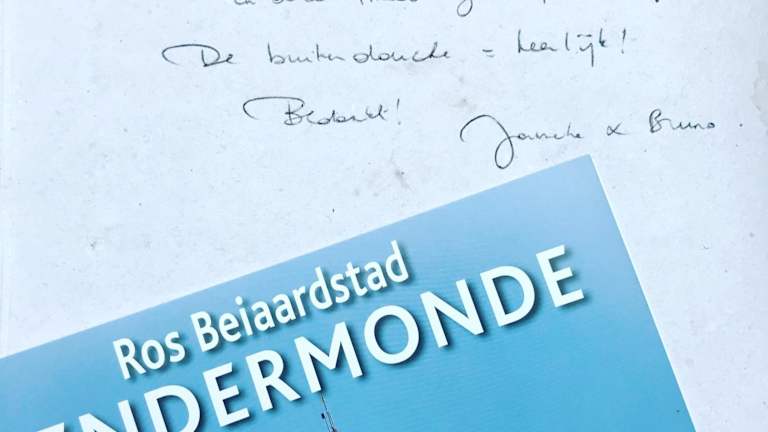 De buitendouche = heerlijk!
Bedankt!
Janneke & Bruno.
Ros Beiaardstad
ENDERMONDE